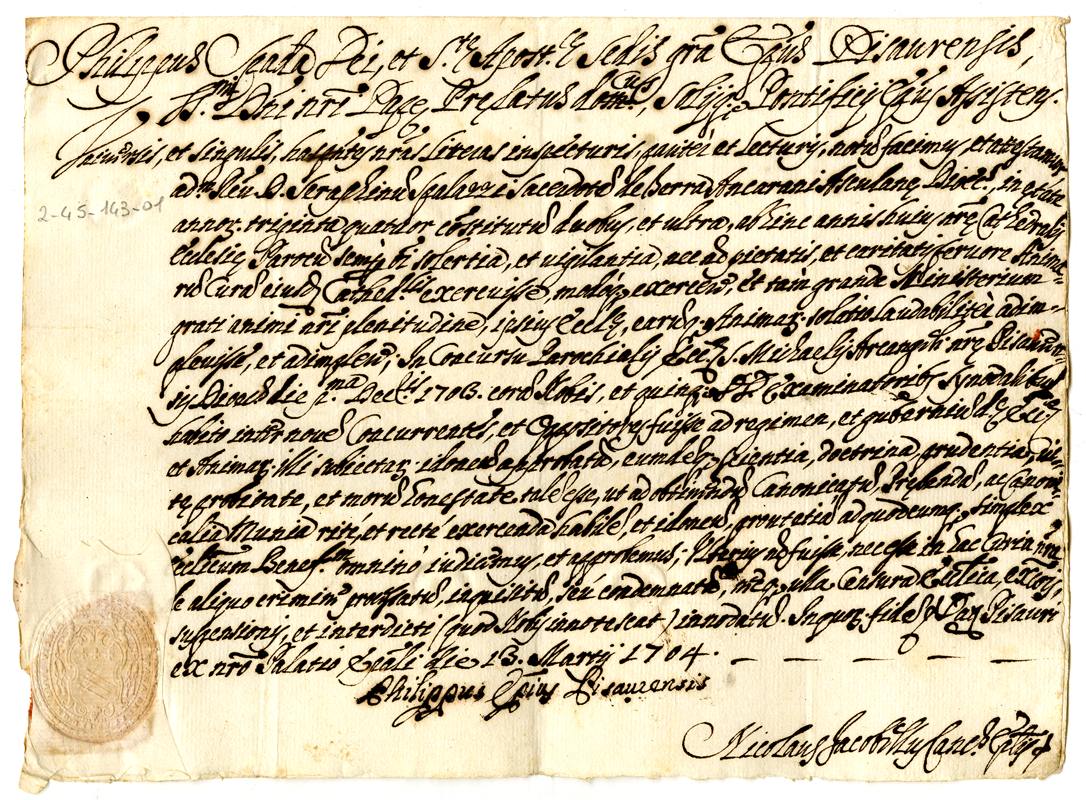 Philippus Spada Dei, et S.te Apost.ce Sedis grã Epũs Pisaurensis,
SS.mi Dñi nrĩ Papę Pręlatus dom.cus, Solijq. Pontificij Epũs Assistens.
Universis, et singulis, has pñtes nrãs literas inspecturis, paritèr et lecturis, notũ facimus, et attestamur
adm. Reũ D. Seraphinũ Spalazzi Sacerdotẽ de Terra Ancarani Asculanę Dioec., in ętate
annor. triginta quatuor cõstitutũ duobus, et ultra, abhinc annis huius nrę Cathedralis
Ecclesię Parocũ semp. ti solertia, et vigilantia, nec ad pietatis, et caritatis fervore Anima-
rũ Curã eiusd. Cathed.lis exercuisse, modoq. exercere, et tàm grande Ministerium
grati animi nrĩ plenitudine, ipsius Eccl., earũq. Animar. solatio laudabilitèr adim-
plevisse, et adimplere; In Concursu Parochialis Eccl. S. Michaelis Arcangeli nrę Pisauren-
sis Dioec. die p.ma Dec.ris 1703. corã Nobis, et quinq. Examinatoribus Synodalibus
habito intèr novẽ Concurrentes, et Oppositores fuisse ad regimen, et guberniũ d.ę Eccl.
et Animar. illi subiectar. idoneũ approbatũ, eumdẽq. scientia, doctrina, prudentia, vi-
tę probitate, et morũ honestate talẽ esse, ut ad obtinendũ Canonicatũ, Prębendã, ac Canoni-
calia Munia ritè, et rectè exercenda habilẽ, et idoneũ, prout etiã ad quodcumq. simplex
Benef.m omninò iudicamus, et approbamus; Ulterius nõ fuisse, nec esse in hac Curia nrã
de aliquo crimine processatũ, inquisitũ, seu condemnatũ, nec ulla Censura Ecclẽsica, excõis,
suspensionis, et interdicti (quod Nobis innotescat) innodatũ. In quor. fidẽ Dat. Pisauri
ex nrõ Palatio Epali die 13. Martij 1704.
Philippus Epũs Pisaurensis
Nicolaus Jacobillus Canc.
2-45-143-01